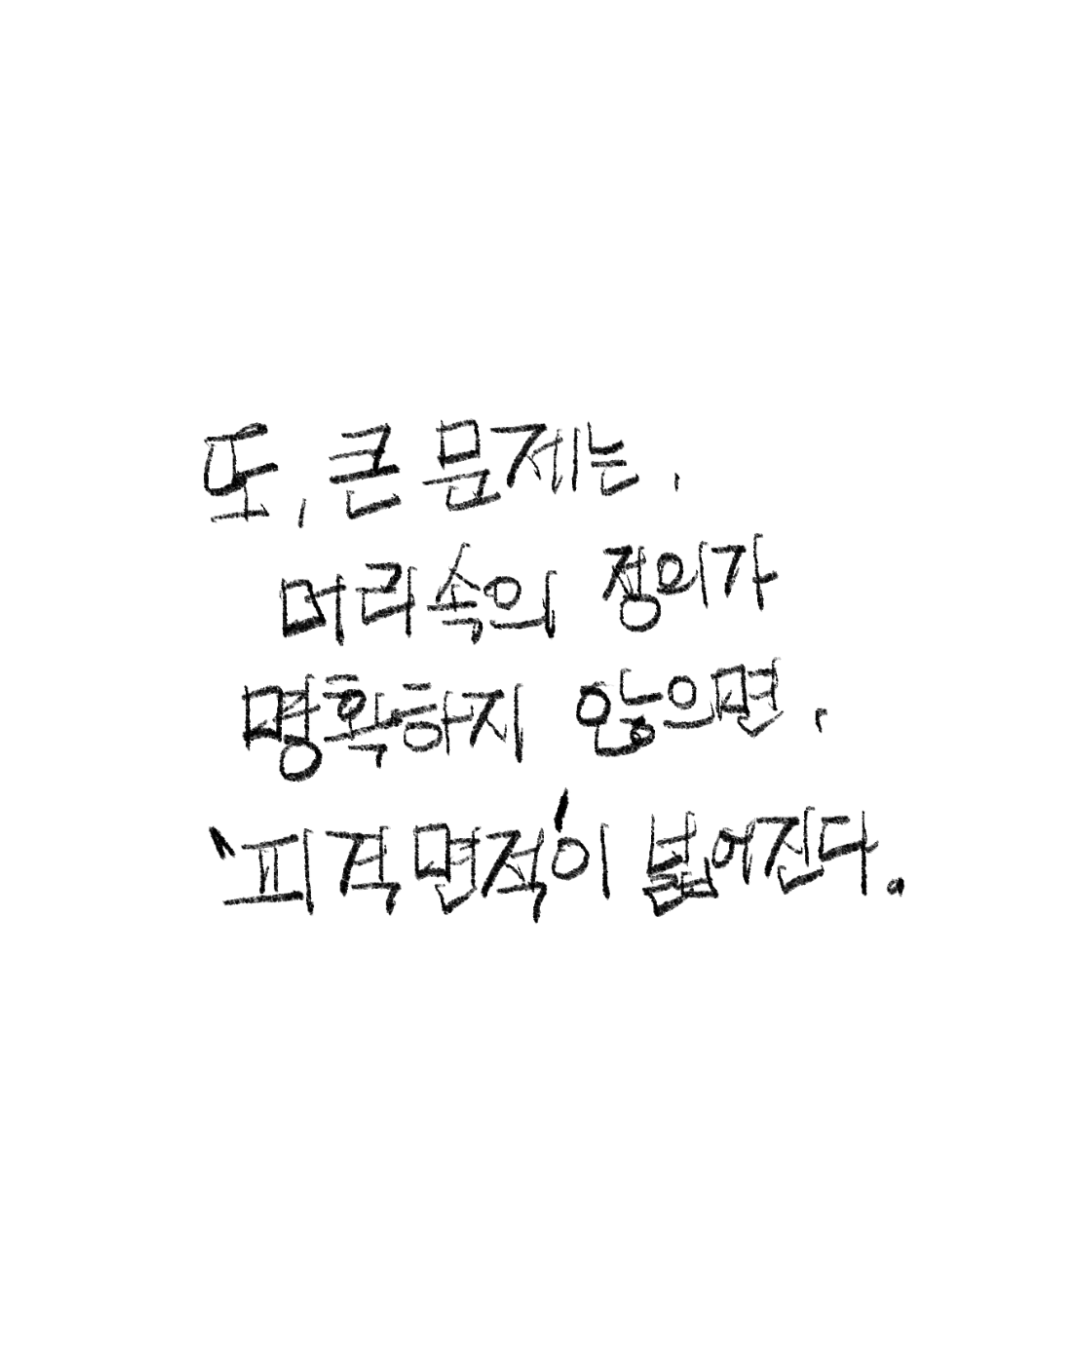 또, 큰 문제는,
머리속의 정의가
명확하지 않으면,
'피격 면적'이 넓어진다.